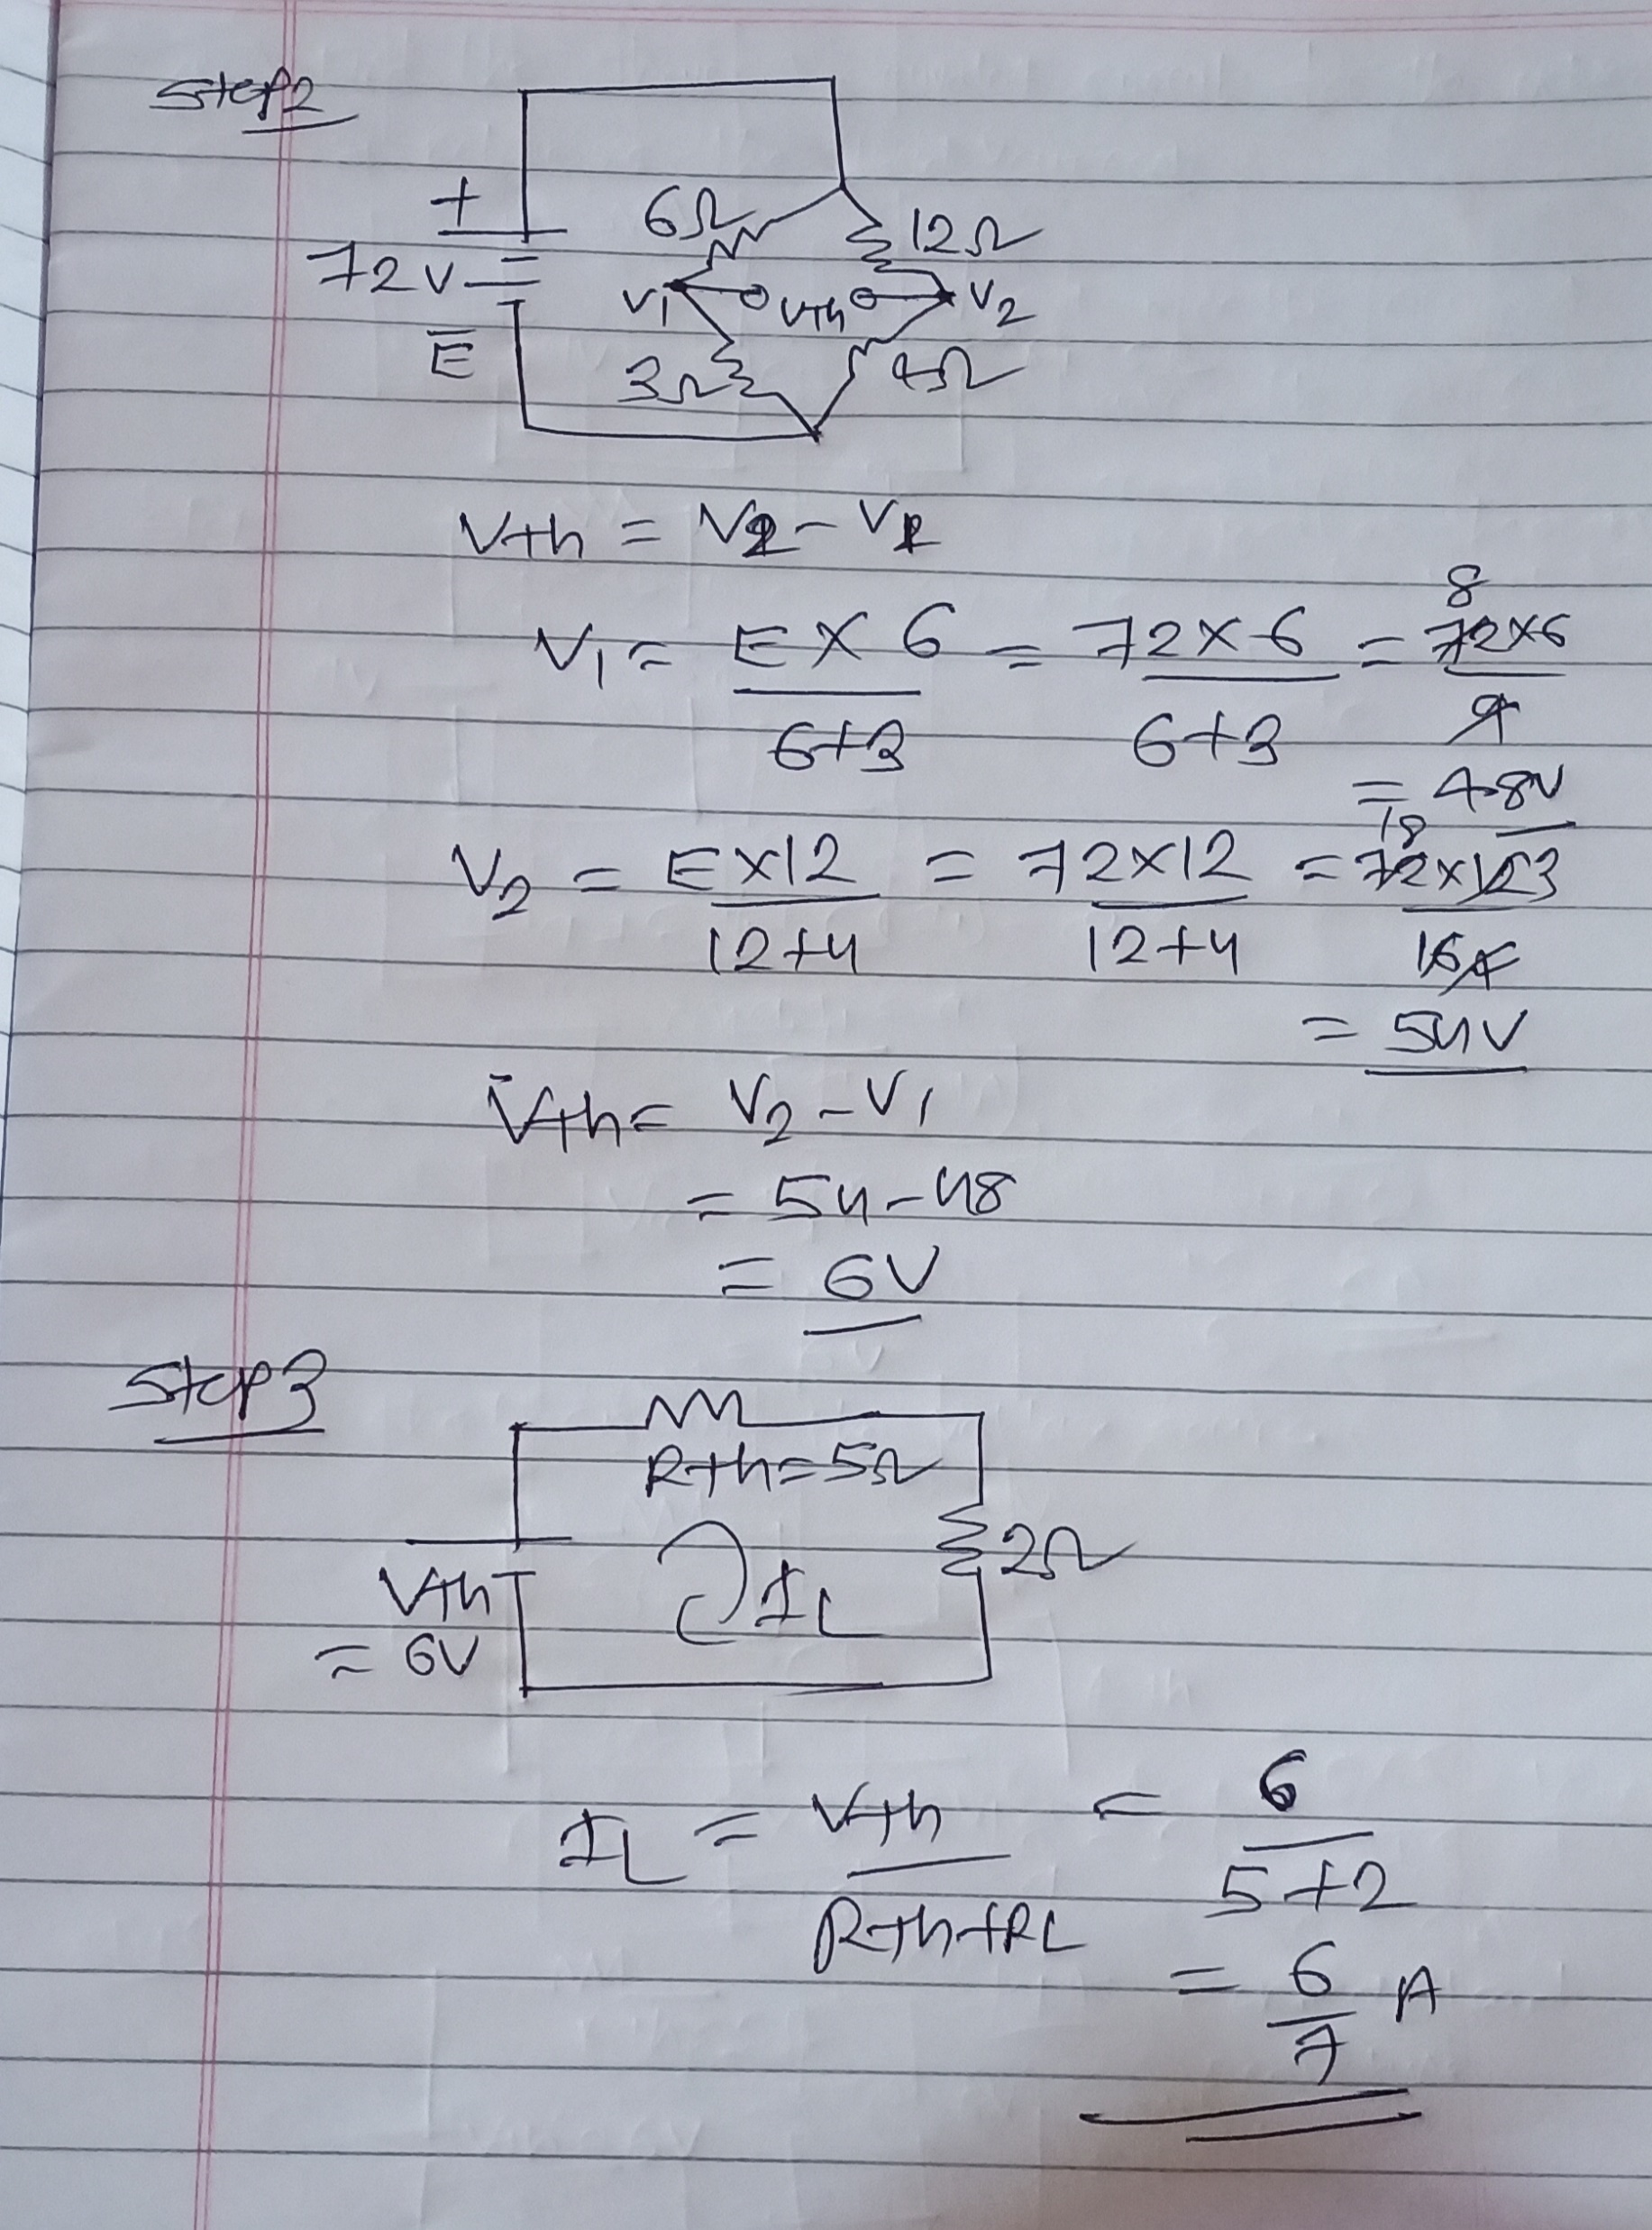 Step2
+
6Ω 12Ω
72V
V1 Vth V2
E
3Ω 4Ω
Vth = V2 - V1
8
V1 = E×6 / 6+3 = 72×6 / 6+3 = 72×6 / 9
= 48V
18
V2 = E×12 / 12+4 = 72×12 / 12+4 = 72×12 3 / 16 4
= 54V
Vth = V2 - V1
= 54 - 48
= 6V
Step3
Rth=5Ω
2Ω
Vth IL
= 6V
IL = Vth / Rth+RL = 6 / 5+2
= 6/7 A